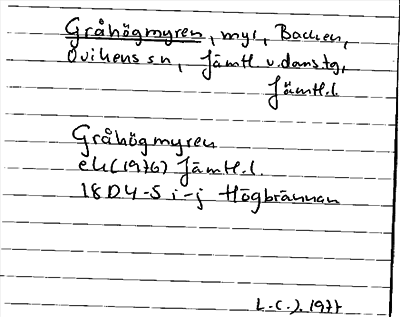 Gråhögmyren, myr, Backen,
Ovikens sn, Jämtl. v. doms.tg,
Jämtl.l.
Gråhögmyren
ek (1976) Jämtl.l.
18D4-5 i-j Högbrännan
L.C.J. 1977